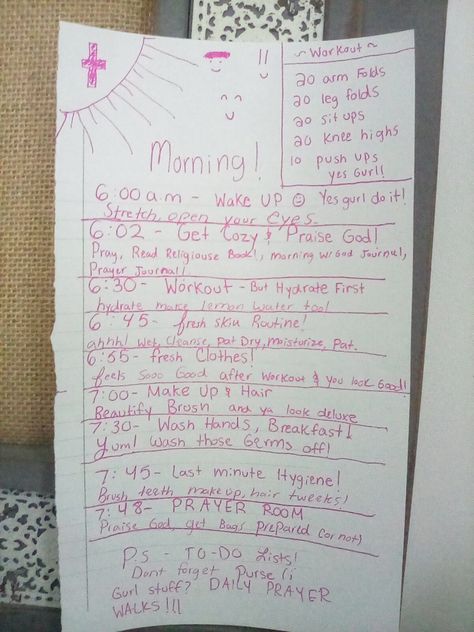 ~ Workout ~
20 arm Folds
20 leg folds
20 sit ups
20 Knee highs
10 push ups
yes Gurl!
Morning!
6:00 a.m - Wake UP ☺ Yes gurl do it!
Stretch, open your Eyes
6:02 - Get Cozy & Praise God!
Pray, Read Religiouse Book!, morning w/ God Journul,
Prayer Journal!
6:30 - Workout - But Hydrate First
hydrate make lemon water too!
6:45 - fresh skin Routine!
ahhh! Wet, Cleanse, pat Dry, moisturize, Pat.
6:55 - fresh Clothes!
feels Sooo Good after workout & you look Good!
7:00 - Make Up & Hair
Beautify Brush and ya look deluxe
7:30 - Wash Hands, Breakfast!
Yum! Wash those Germs off!
7:45 - Last minute Hygiene!
Brush teeth makeup, hair tweeks!
7:48 - PRAYER ROOM
Praise God, get Bags prepared (or not)
P.S - TO-DO Lists!
Dont forget Purse!
Gurl stuff? DAILY PRAYER
WALKS!!!